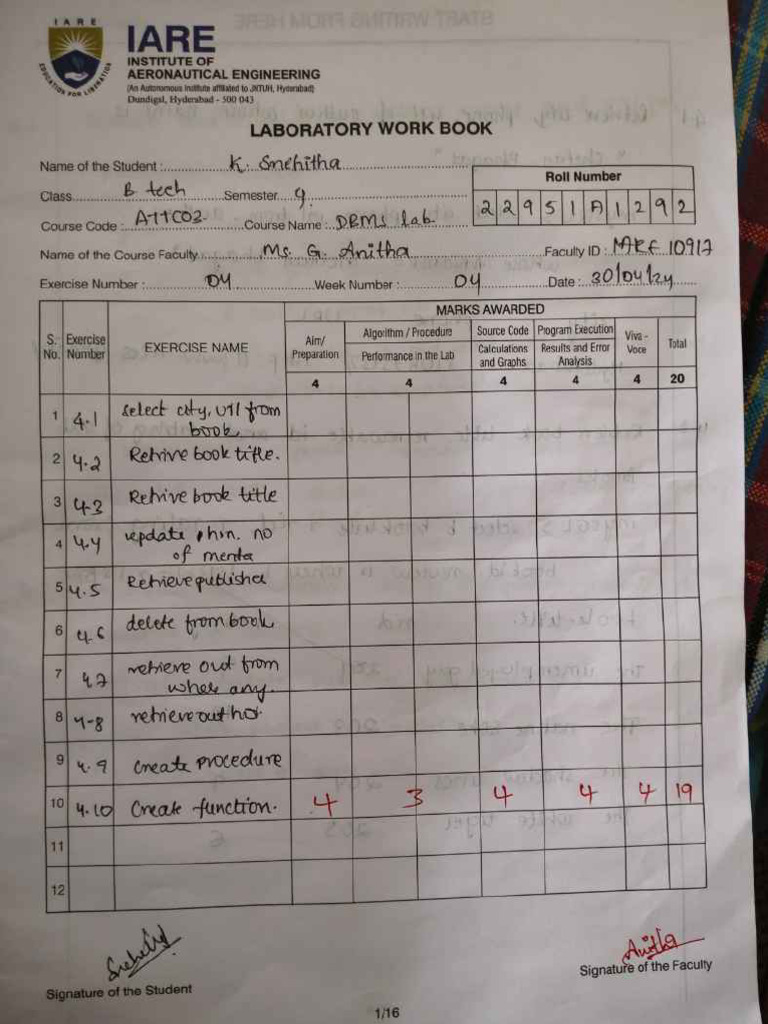 IARE
EDUCATION FOR LIBERATION
IARE
INSTITUTE OF
AERONAUTICAL ENGINEERING
(An Autonomous Institute affiliated to JNTUH, Hyderabad)
Dundigal, Hyderabad - 500 043
LABORATORY WORK BOOK
Name of the Student : K. Snehitha
Roll Number
Class B tech Semester 4
22951A1292
Course Code : Course Name : DBMS lab
Name of the Course Faculty Ms. G. Anitha Faculty ID : IARE 10917
Exercise Number : 04 Week Number : 04 Date : 30/04/24
S. No. Exercise Number EXERCISE NAME MARKS AWARDED
Aim/ Preparation Algorithm / Procedure Performance in the Lab Source Code Calculations and Graphs Program Execution Results and Error Analysis Viva - Voce Total
4 4 4 4 4 20
1 4.1 select city, from
book
2 4.2 Retrive book title.
3 4.3 Retrive book title
4 4.4 update no
of
5 4.5 Retrieve publisher
6 4.6 delete from book
7 4.7 retrieve out from
any.
8 4-8 retrieve out
9 4.9 create procedure
10 4.10 Create function. 4 3 4 4 4 19
11
12
Anitha
Signature of the Student
Signature of the Faculty
1/16